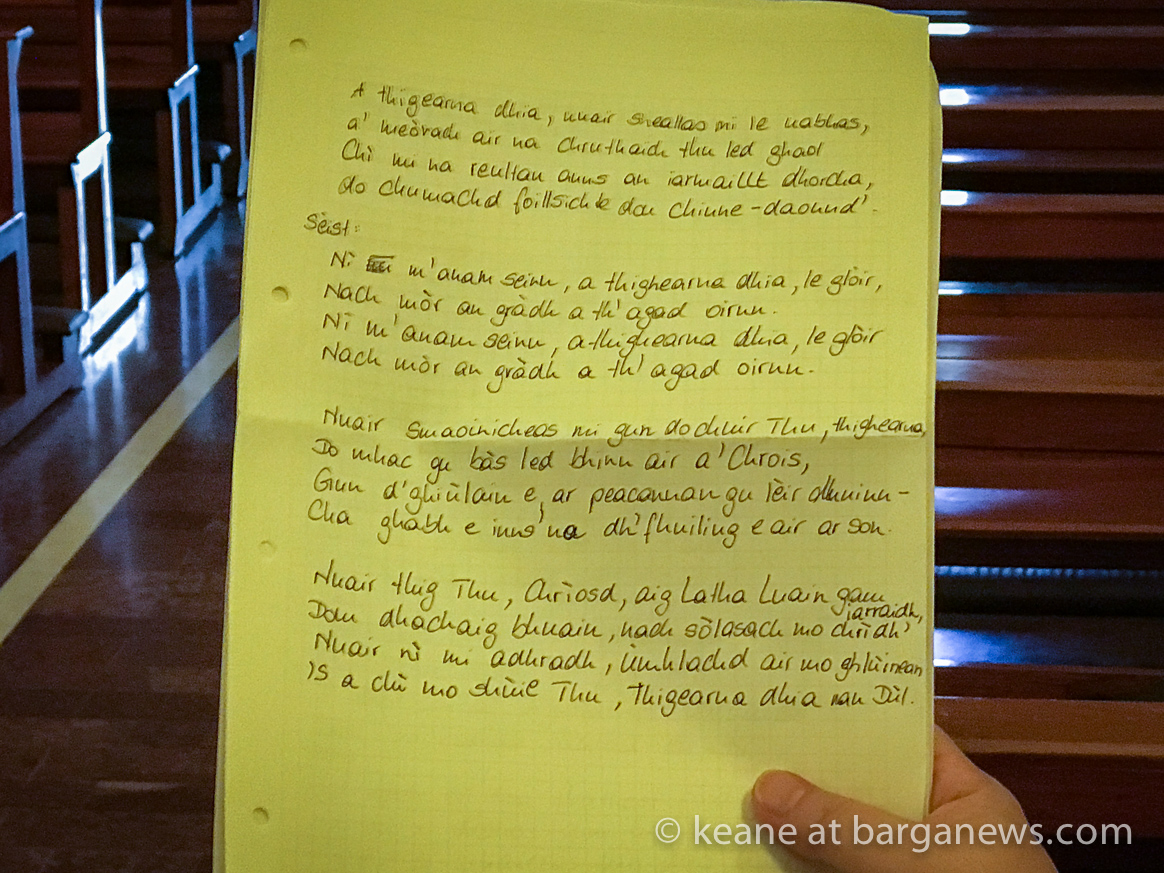 A thigearna dhia, nuair sheallas mi le uabhas,
a' meòrach air na Chruthaich thu led ghaol
Chì mi na reultan anns an iarmaillt dhorcha,
do chumachd foillsichte don Chinne-daound'.
Sèist:
Nì m'anam seinn, a thighearna dhia, le glòir,
Nach mòr an gràdh a th' agad oirnn.
Nì m'anam seinn, a thighearna dhia, le glòir
Nach mòr an gràdh a th' agad oirnn.
Nuair smaoinicheas mi gun do chuir Thu, thighearna,
Do mhac gu bàs led bhinn air a' Chrois,
Gun d'ghiùlain e, ar peacannan gu lèir dhuinn-
Cha ghabh e inns' na dh'fhuiling e air ar son.
Nuair thig Thu, Chrìosd, aig Latha Luain gam
iarraidh,
Dom dhachaig bhuain, nach sòlasach mo chrìdh'
Nuair nì mi adhradh, ùmhlachd air mo ghlùinean
'S a chì mo shùile Thu, Thigearna dhia nan Dùl.
© keane at barganews.com